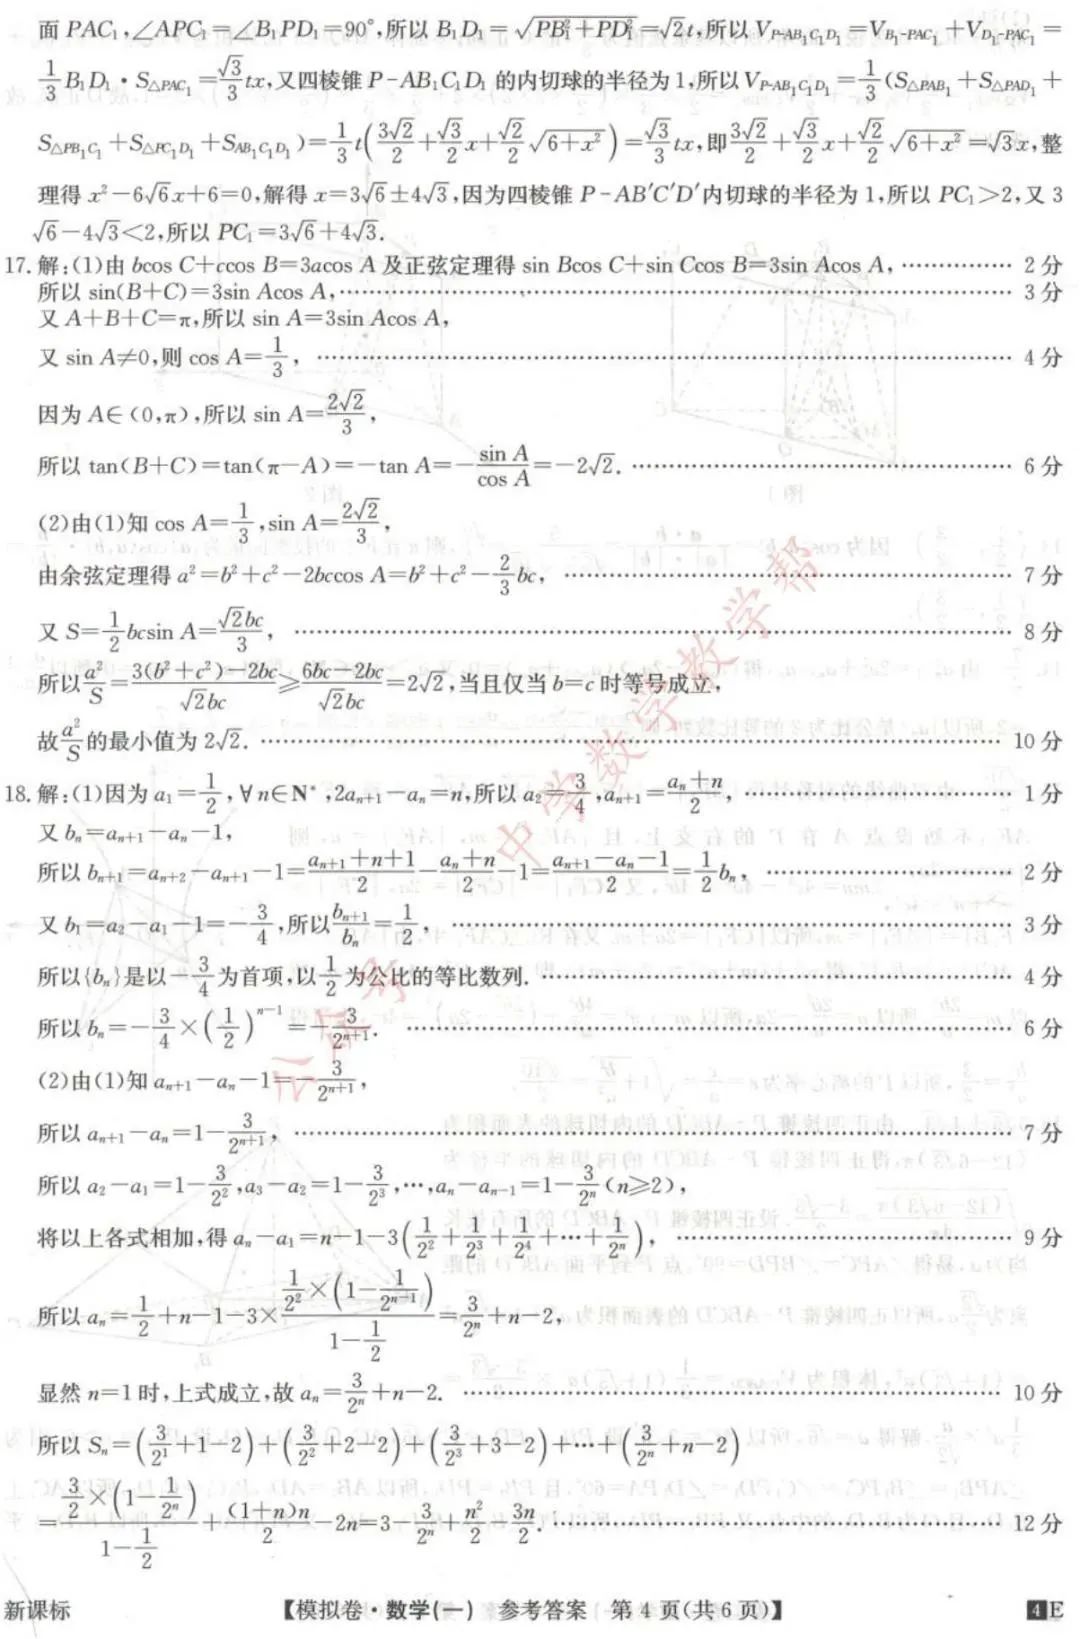 面 PAC₁,∠APC₁=∠B₁PD₁=90°,所以 B₁D₁=√(PB₁²+PD₁²)=√2t,所以V_{P-AB₁C₁D₁}=V_{B₁-PAC₁}+V_{D₁-PAC₁}=
1/3 B₁D₁·S_{△PAC₁}=√3/3 tx,又四棱锥 P-AB₁C₁D₁ 的内切球的半径为1,所以V_{P-AB₁C₁D₁}=1/3(S_{△PAB₁}+S_{△PAD₁}+
S_{△PB₁C₁}+S_{△PC₁D₁}+S_{AB₁C₁D₁})=1/3 t(3√2/2+√3/2 x+√2/2 √(6+x²))=√3/3 tx,即3√2/2+√3/2 x+√2/2 √(6+x²)=√3x,整
理得 x²-6√6x+6=0,解得 x=3√6±4√3,因为四棱锥 P-AB′C′D′内切球的半径为1,所以 PC₁>2,又3
√6-4√3<2,所以 PC₁=3√6+4√3.
17.解:(1)由 bcos C+ccos B=3acos A 及正弦定理得 sin Bcos C+sin Ccos B=3sin Acos A,……………2分
所以 sin(B+C)=3sin Acos A,……………3分
又 A+B+C=π,所以 sin A=3sin Acos A,
又 sin A≠0,则 cos A=1/3,……………4分
因为 A∈(0,π),所以 sin A=2√2/3,
所以 tan(B+C)=tan(π-A)=-tan A=-sin A/cos A=-2√2.……………6分
(2)由(1)知 cos A=1/3,sin A=2√2/3,
由余弦定理得 a²=b²+c²-2bccos A=b²+c²-2/3 bc,……………7分
又 S=1/2 bcsin A=√2bc/3,……………8分
所以 a²/S=(3(b²+c²)-2bc)/(√2bc)≥(6bc-2bc)/(√2bc)=2√2,当且仅当 b=c 时等号成立,
故 a²/S 的最小值为 2√2.……………10分
18.解:(1)因为 a₁=1/2,∀n∈N*,2aₙ₊₁-aₙ=n,所以 a₂=3/4,aₙ₊₁=(aₙ+n)/2,……………1分
又 bₙ=aₙ₊₁-aₙ-1,
所以 bₙ₊₁=aₙ₊₂-aₙ₊₁-1=(aₙ₊₁+n+1)/2-(aₙ+n)/2-1=(aₙ₊₁-aₙ-1)/2=1/2 bₙ,……………2分
又 b₁=a₂-a₁-1=-3/4,所以 bₙ₊₁/bₙ=1/2,……………3分
所以{bₙ}是以-3/4为首项,以1/2为公比的等比数列.……………4分
所以 bₙ=-3/4×(1/2)ⁿ⁻¹=-3/2ⁿ⁺¹.……………6分
(2)由(1)知 aₙ₊₁-aₙ-1=-3/2ⁿ⁺¹,
所以 aₙ₊₁-aₙ=1-3/2ⁿ⁺¹,……………7分
所以 a₂-a₁=1-3/2²,a₃-a₂=1-3/2³,…,aₙ-aₙ₋₁=1-3/2ⁿ(n≥2),
将以上各式相加,得 aₙ-a₁=n-1-3(1/2²+1/2³+1/2⁴+…+1/2ⁿ),……………9分
所以 aₙ=1/2+n-1-3×(1/2²×(1-1/2ⁿ⁻¹))/(1-1/2)=3/2ⁿ+n-2,
显然 n=1 时,上式成立,故 aₙ=3/2ⁿ+n-2.……………10分
所以 Sₙ=(3/2¹+1-2)+(3/2²+2-2)+(3/2³+3-2)+…+(3/2ⁿ+n-2)
=(3/2×(1-1/2ⁿ))/(1-1/2)+(1+n)n/2-2n=3-3/2ⁿ+n²/2-3n/2.……………12分
公众号 中学数学教学帮
新课标 【模拟卷·数学(一) 参考答案 第4页(共6页)】 4E